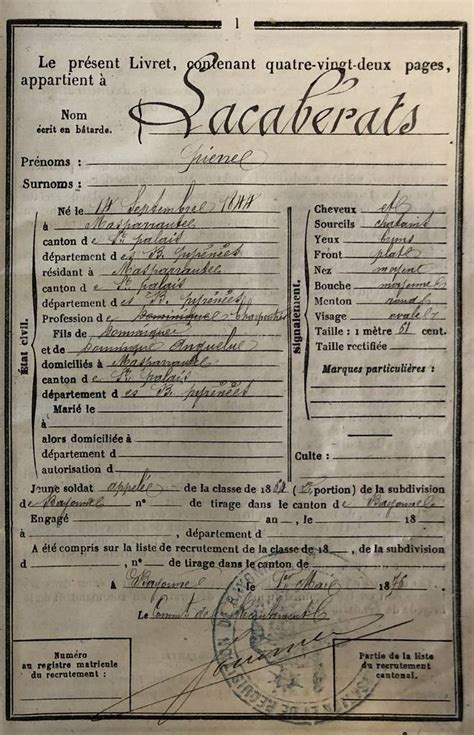 1
Le présent Livret, contenant quatre-vingt-deux pages,
appartient à
Nom Lacabérats
écrit en bâtarde.
Prénoms : Pierre
Surnoms :
État civil.
Né le 14 Septembre 1844
à Masparraute
canton de St palais
département des B. pyrénées
résidant à Masparraute
canton de St palais
département des B. pyrénées
Profession de Dominique Charpentier
Fils de Dominique
et de Dominique
domiciliés à Masparraute
canton de St palais
département des B. pyrénées
Marié le
à
alors domiciliée à
département d
autorisation d
Signalement.
Cheveux et
Sourcils chatains
Yeux bruns
Front plat
Nez moyen
Bouche moyenne
Menton rond
Visage ovale
Taille : 1 mètre 61 cent.
Taille rectifiée
Marques particulières :
Culte :
Jeune soldat appelé de la classe de 1864 (2e portion) de la subdivision
de Bayonne n° de tirage dans le canton de Bayonne
Engagé an , le 18
à , département d
A été compris sur la liste de recrutement de la classe de 18 , de la subdivision
d n° de tirage dans le canton de
A Bayonne le 1er Mai 1876
Le Commt de Recrutement
Numéro
au registre matricule
du recrutement :
Partie de la liste
du recrutement
cantonal.